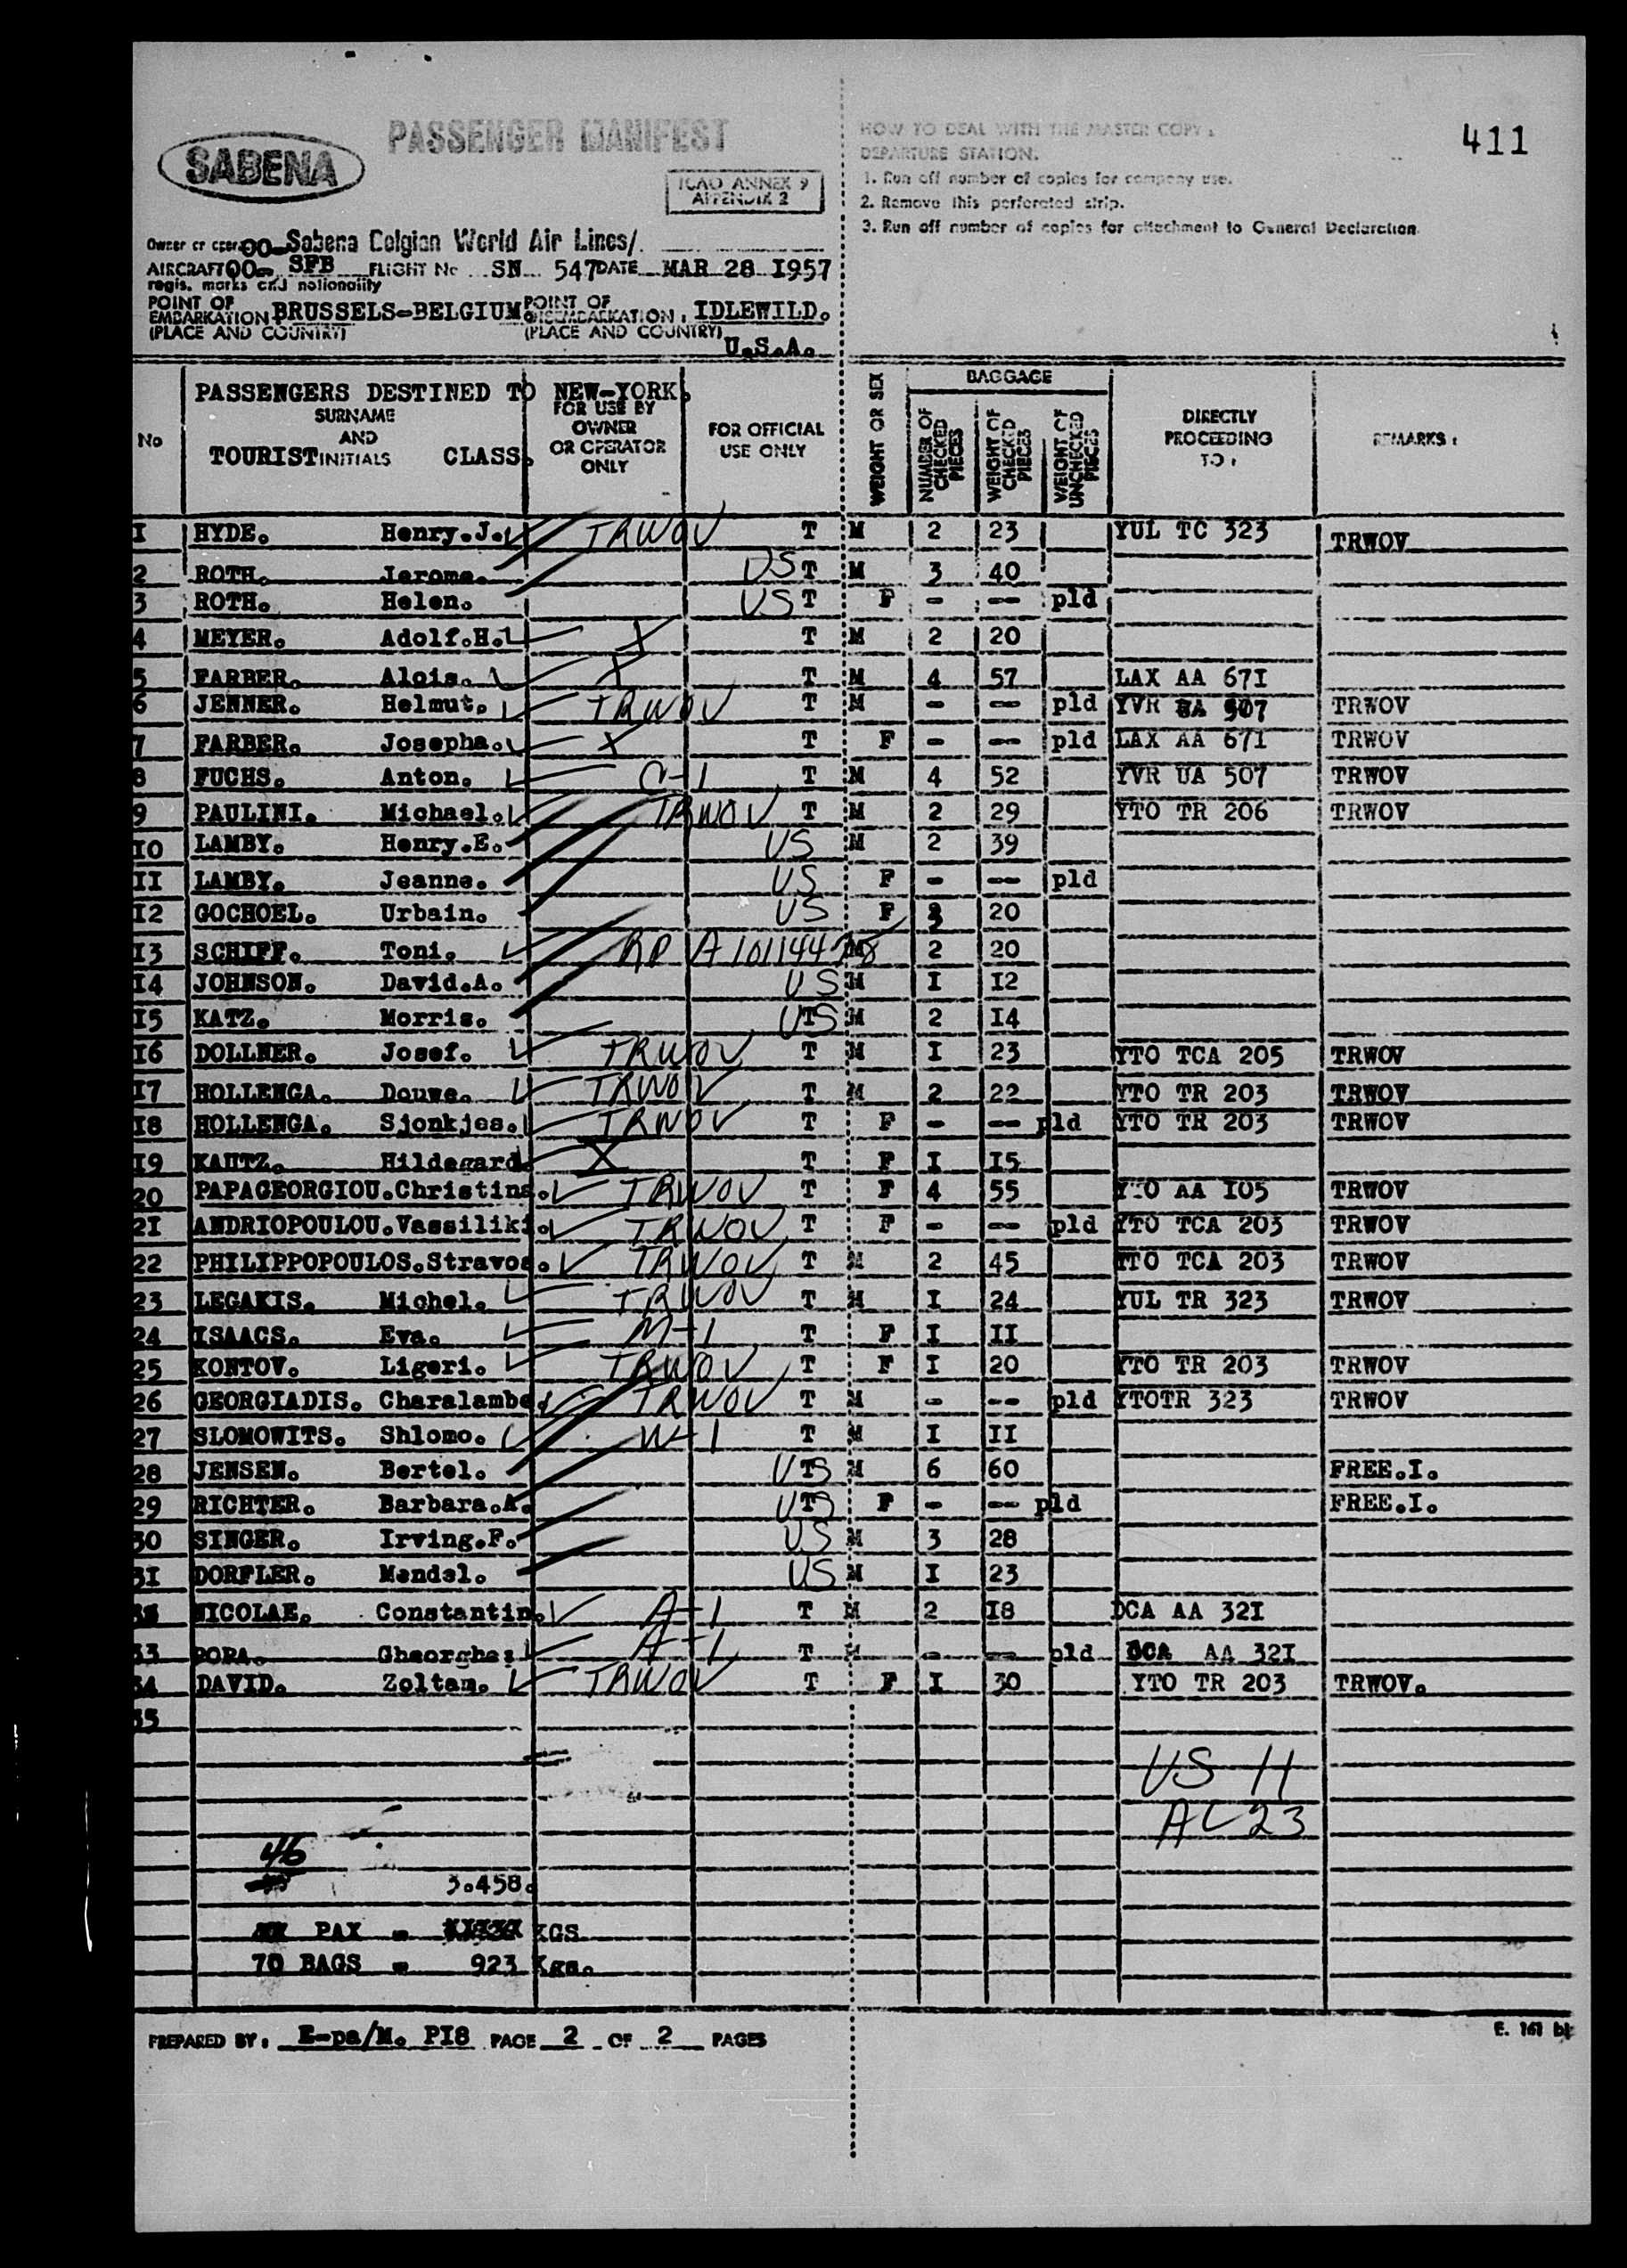 PASSENGER MANIFEST
SABENA
ICAO ANNEX 9
APPENDIX 2
HOW TO DEAL WITH THE MASTER COPY :
DEPARTURE STATION.
1. Run off number of copies for company use.
2. Remove this perforated strip.
3. Run off number of copies for attachment to General Declaration.
411
Owner or Sabena Belgian World Air Lines/.
AIRCRAFT OO- SFB FLIGHT No SN 547 DATE MAR 28 1957
regis. marks and nationality
POINT OF EMBARKATION BRUSSELS-BELGIUM POINT OF DISEMBARKATION. IDLEWILD.
(PLACE AND COUNTRY) (PLACE AND COUNTRY) U.S.A.
No
PASSENGERS DESTINED TO NEW-YORK.
SURNAME
AND
TOURIST INITIALS CLASS.
FOR USE BY
OWNER
OR OPERATOR
ONLY
FOR OFFICIAL
USE ONLY
WEIGHT OR SEX
BAGGAGE
NUMBER OF CHECKED PIECES
WEIGHT OF CHECKED PIECES
WEIGHT OF UNCHECKED PIECES
DIRECTLY
PROCEEDING
TO :
REMARKS :
1 HYDE. Henry.J. TRWOV T M 2 23 YUL TC 323 TRWOV
2 ROTH. Jerome. US T M 3 40
3 ROTH. Helen. US T F - -- pld
4 MEYER. Adolf.H. X T M 2 20
5 FARBER. Alois. X T M 4 57 LAX AA 671
6 JENNER. Helmut. TRWOV T M - -- pld YVR UA 507 TRWOV
7 FARBER. Josepha. X T F - -- pld LAX AA 671 TRWOV
8 FUCHS. Anton. C-1 T M 4 52 YVR UA 507 TRWOV
9 PAULINI. Michael. TRWOV T M 2 29 YTO TR 206 TRWOV
10 LAMBY. Henry.E. US M 2 39
11 LAMBY. Jeanne. US F - -- pld
12 GOCHOEL. Urbain. US F 2 20
13 SCHIFF. Toni. RP A10114478 2 20
14 JOHNSON. David.A. US M I 12
15 KATZ. Morris. US T M 2 14
16 DOLLNER. Josef. TRWOV T M I 23 YTO TCA 205 TRWOV
17 HOLLENGA. Douwe. TRWOV T M 2 22 YTO TR 203 TRWOV
18 HOLLENGA. Sjonkjes. TRWOV T F - -- pld YTO TR 203 TRWOV
19 KAUTZ. Hildegard X T F I 15
20 PAPAGEORGIOU.Christina. TRWOV T F 4 55 YTO AA 105 TRWOV
21 ANDRIOPOULOU.Vassiliki. TRWOV T F - -- pld YTO TCA 203 TRWOV
22 PHILIPPOPOULOS.Stravos. TRWOV T M 2 45 YTO TCA 203 TRWOV
23 LEGAKIS. Michel. TRWOV T M I 24 YUL TR 323 TRWOV
24 ISAACS. Eva. M-1 T F I II
25 KONTOV. Ligeri. TRWOV T F I 20 YTO TR 203 TRWOV
26 GEORGIADIS. Charalambe TRWOV T M - -- pld YTOTR 323 TRWOV
27 SLOMOWITS. Shlomo. W-1 T M I II
28 JENSEN. Bertel. US T M 6 60 FREE.I.
29 RICHTER. Barbara.A. US T F - -- pld FREE.I.
30 SINGER. Irving.F. US M 3 28
31 DORFLER. Mendel. US M I 23
NICOLAE. Constantin. A-1 T M 2 18 DCA AA 321
33 POPA. Gheorghe: A-1 T M - -- pld DCA AA 321
34 DAVID. Zoltan. TRWOV T F I 30 YTO TR 203 TRWOV.
35
US 11
AL 23
46
3.458.
PAX = KGS
70 BAGS = 923 Kgs.
PREPARED BY : E-pa/M. PI8 PAGE 2 OF 2 PAGES
E. 161 bt